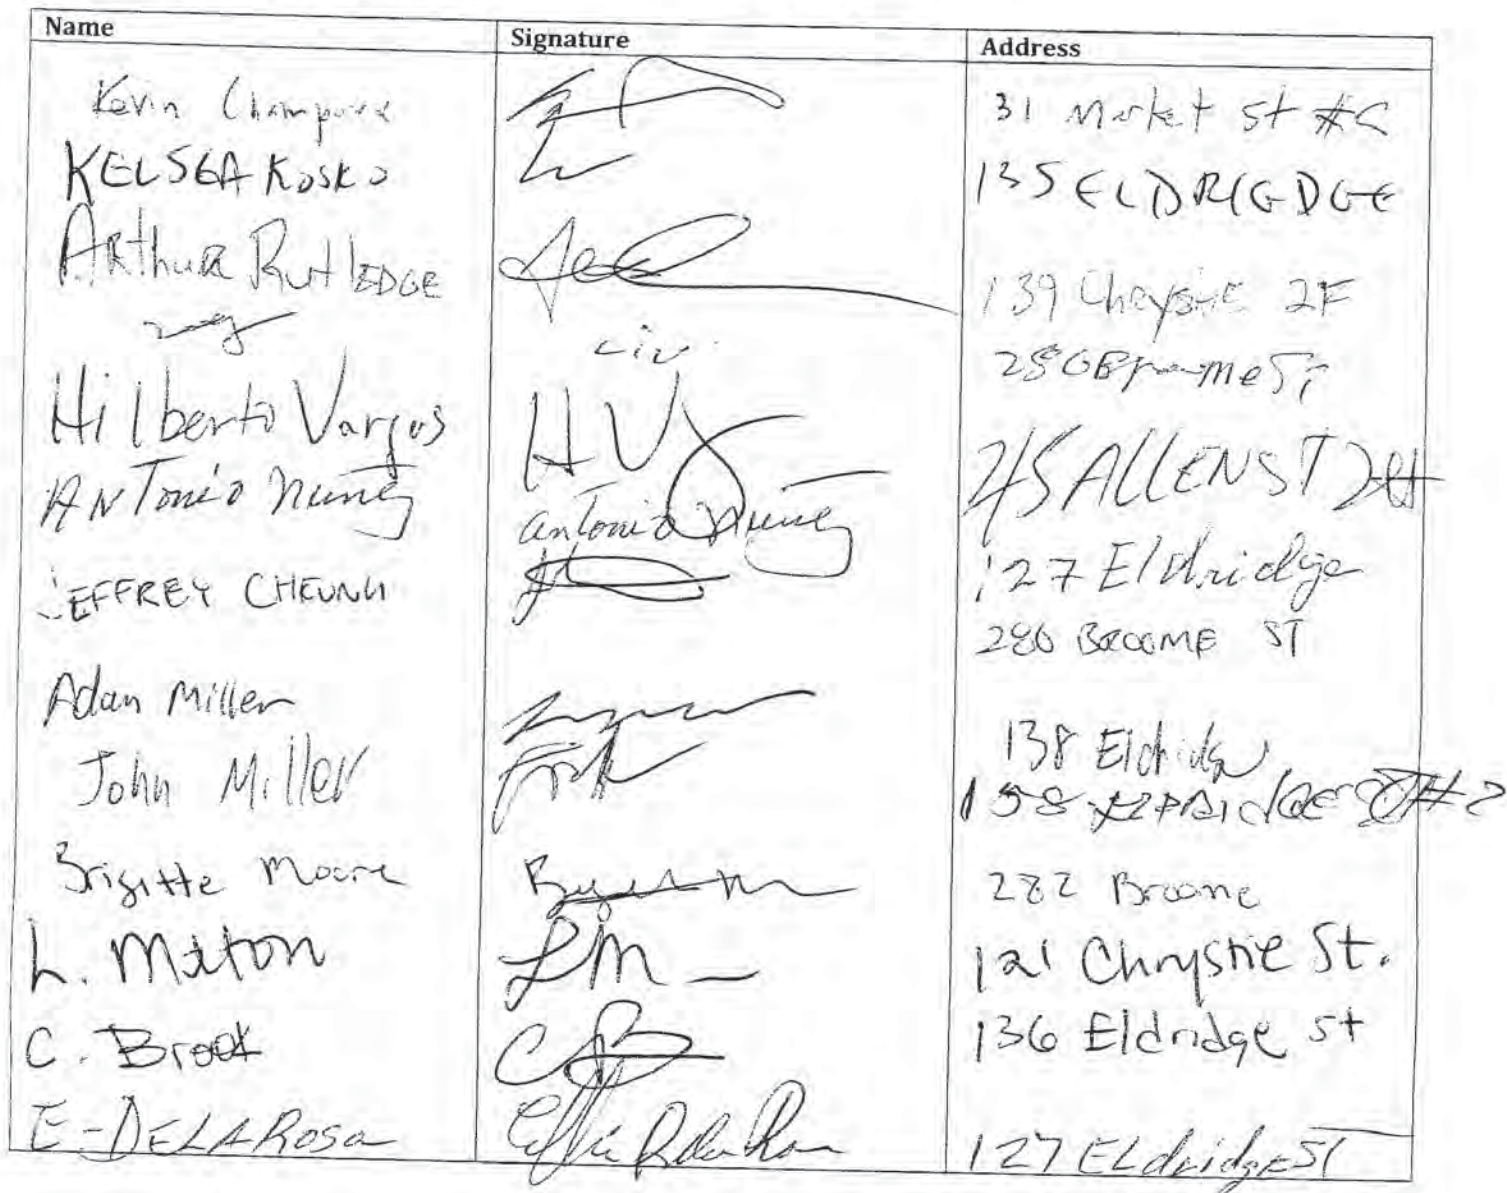 Name Signature Address
Kevin 31 Market St #
KELSEA KOSKO 135 ELDRIGDGE
ARthuR RutlEDGE 139 Chrystie 2F
Liu 280 Broome St
Hilberto Vargas HV 245 ALLEN ST
ANTonio nuñez antonio nuñez 127 Eldridge
JEFFREY CHEUNG 280 BROOME ST
Adam Miller 138 Eldridge
John Miller
Brigitte Moore 282 Broome
L. Melton LM 121 Chrystie St.
C. Brook CB 136 Eldridge St
E-DELAROSa 127 ELdridge ST